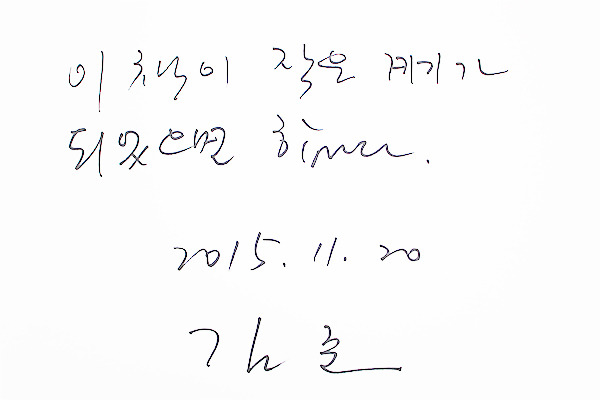 이 책이 작은 계기가
되었으면 합니다.
2015. 11. 20
김훈